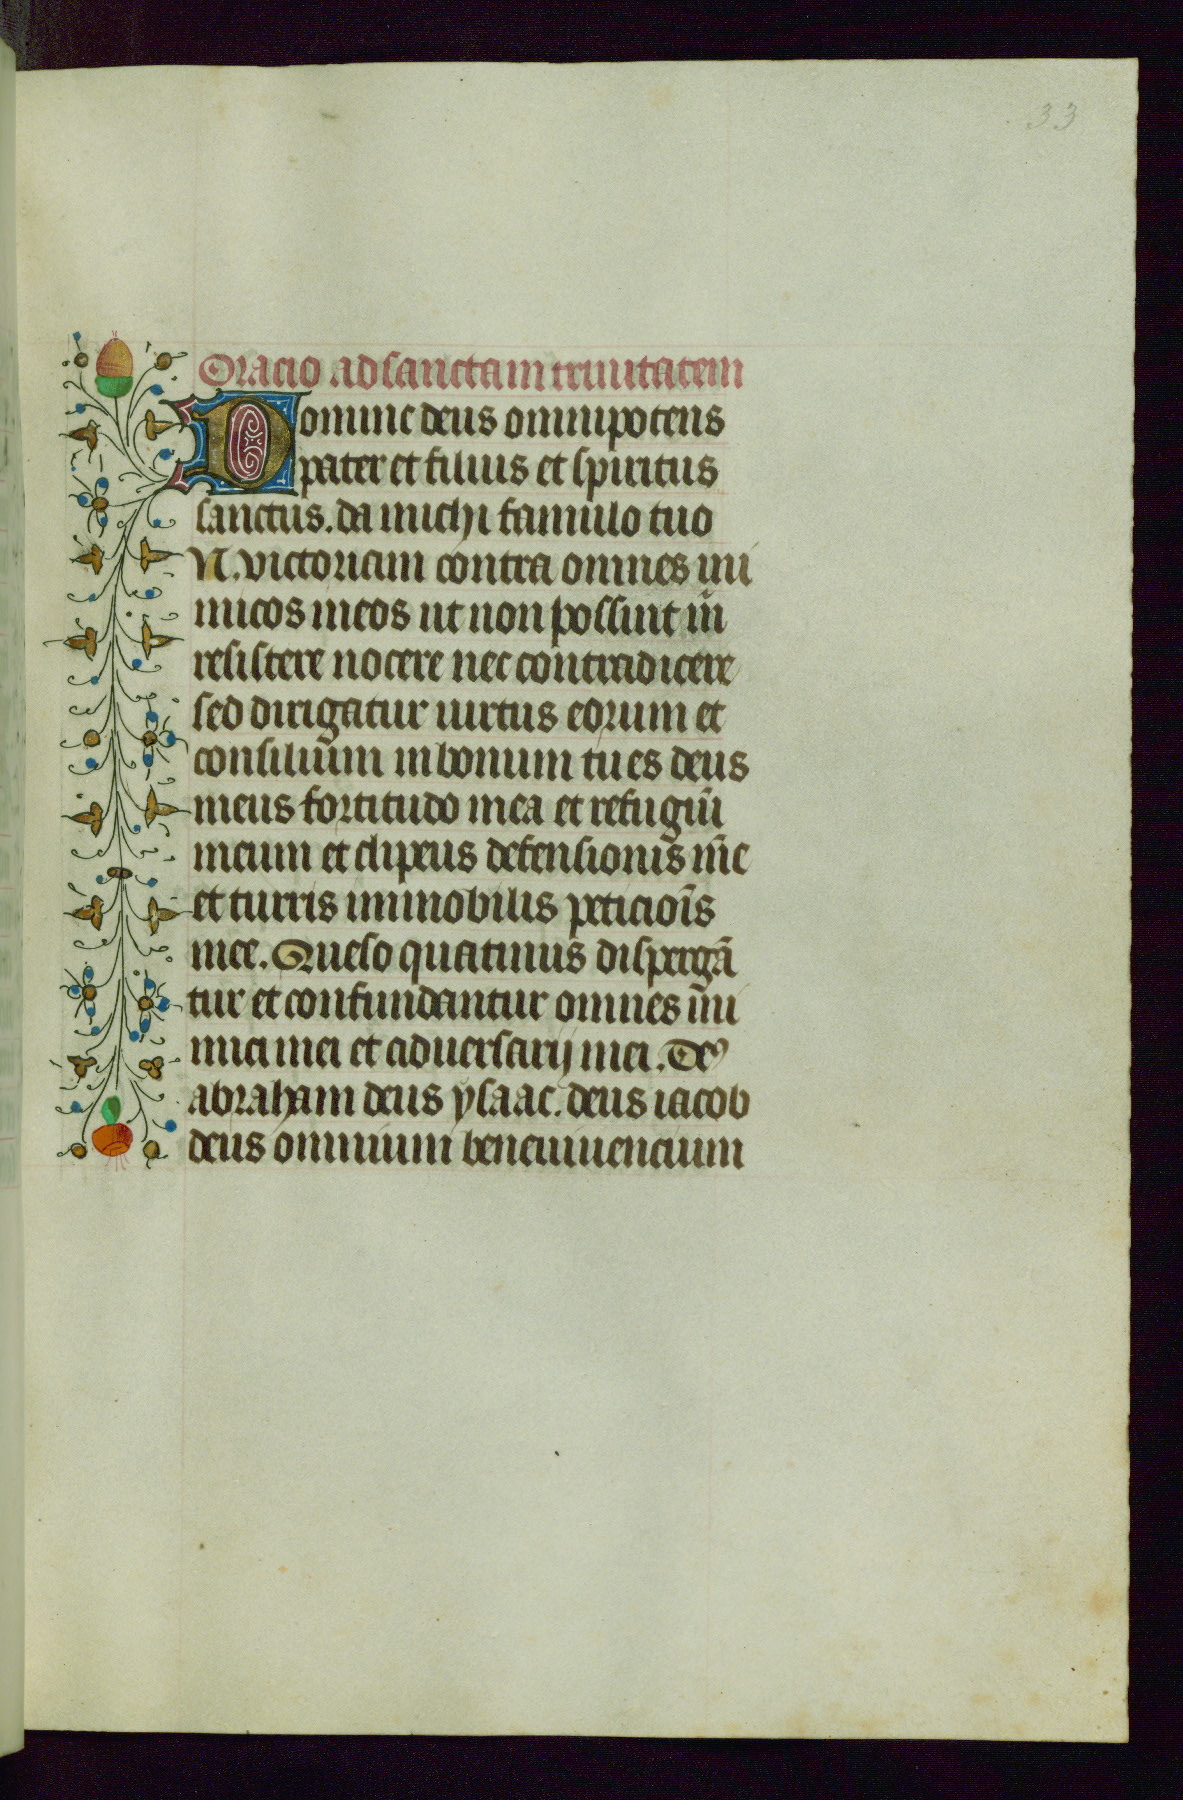 33
Oracio ad sanctam trinitatem
Domine deus omnipotens
pater et filius et spiritus
sanctus. da michi famulo tuo
N. victoriam contra omnes ini
micos meos ut non possint m̄
resistere nocere nec contradicere
sed dirigatur uirtus eorum et
consiliuum in bonum tu es deus
meus fortitudo mea et refugiū
meum et clipeus defensionis mē
et turris immobilis peticiōis
mee. Queso quatinus dispergā
tur et confundantur omnes ini
mici mei et aduersarij mei. De⁹
abraham deus ysaac. deus iacob
deus omnium beneuiuencium